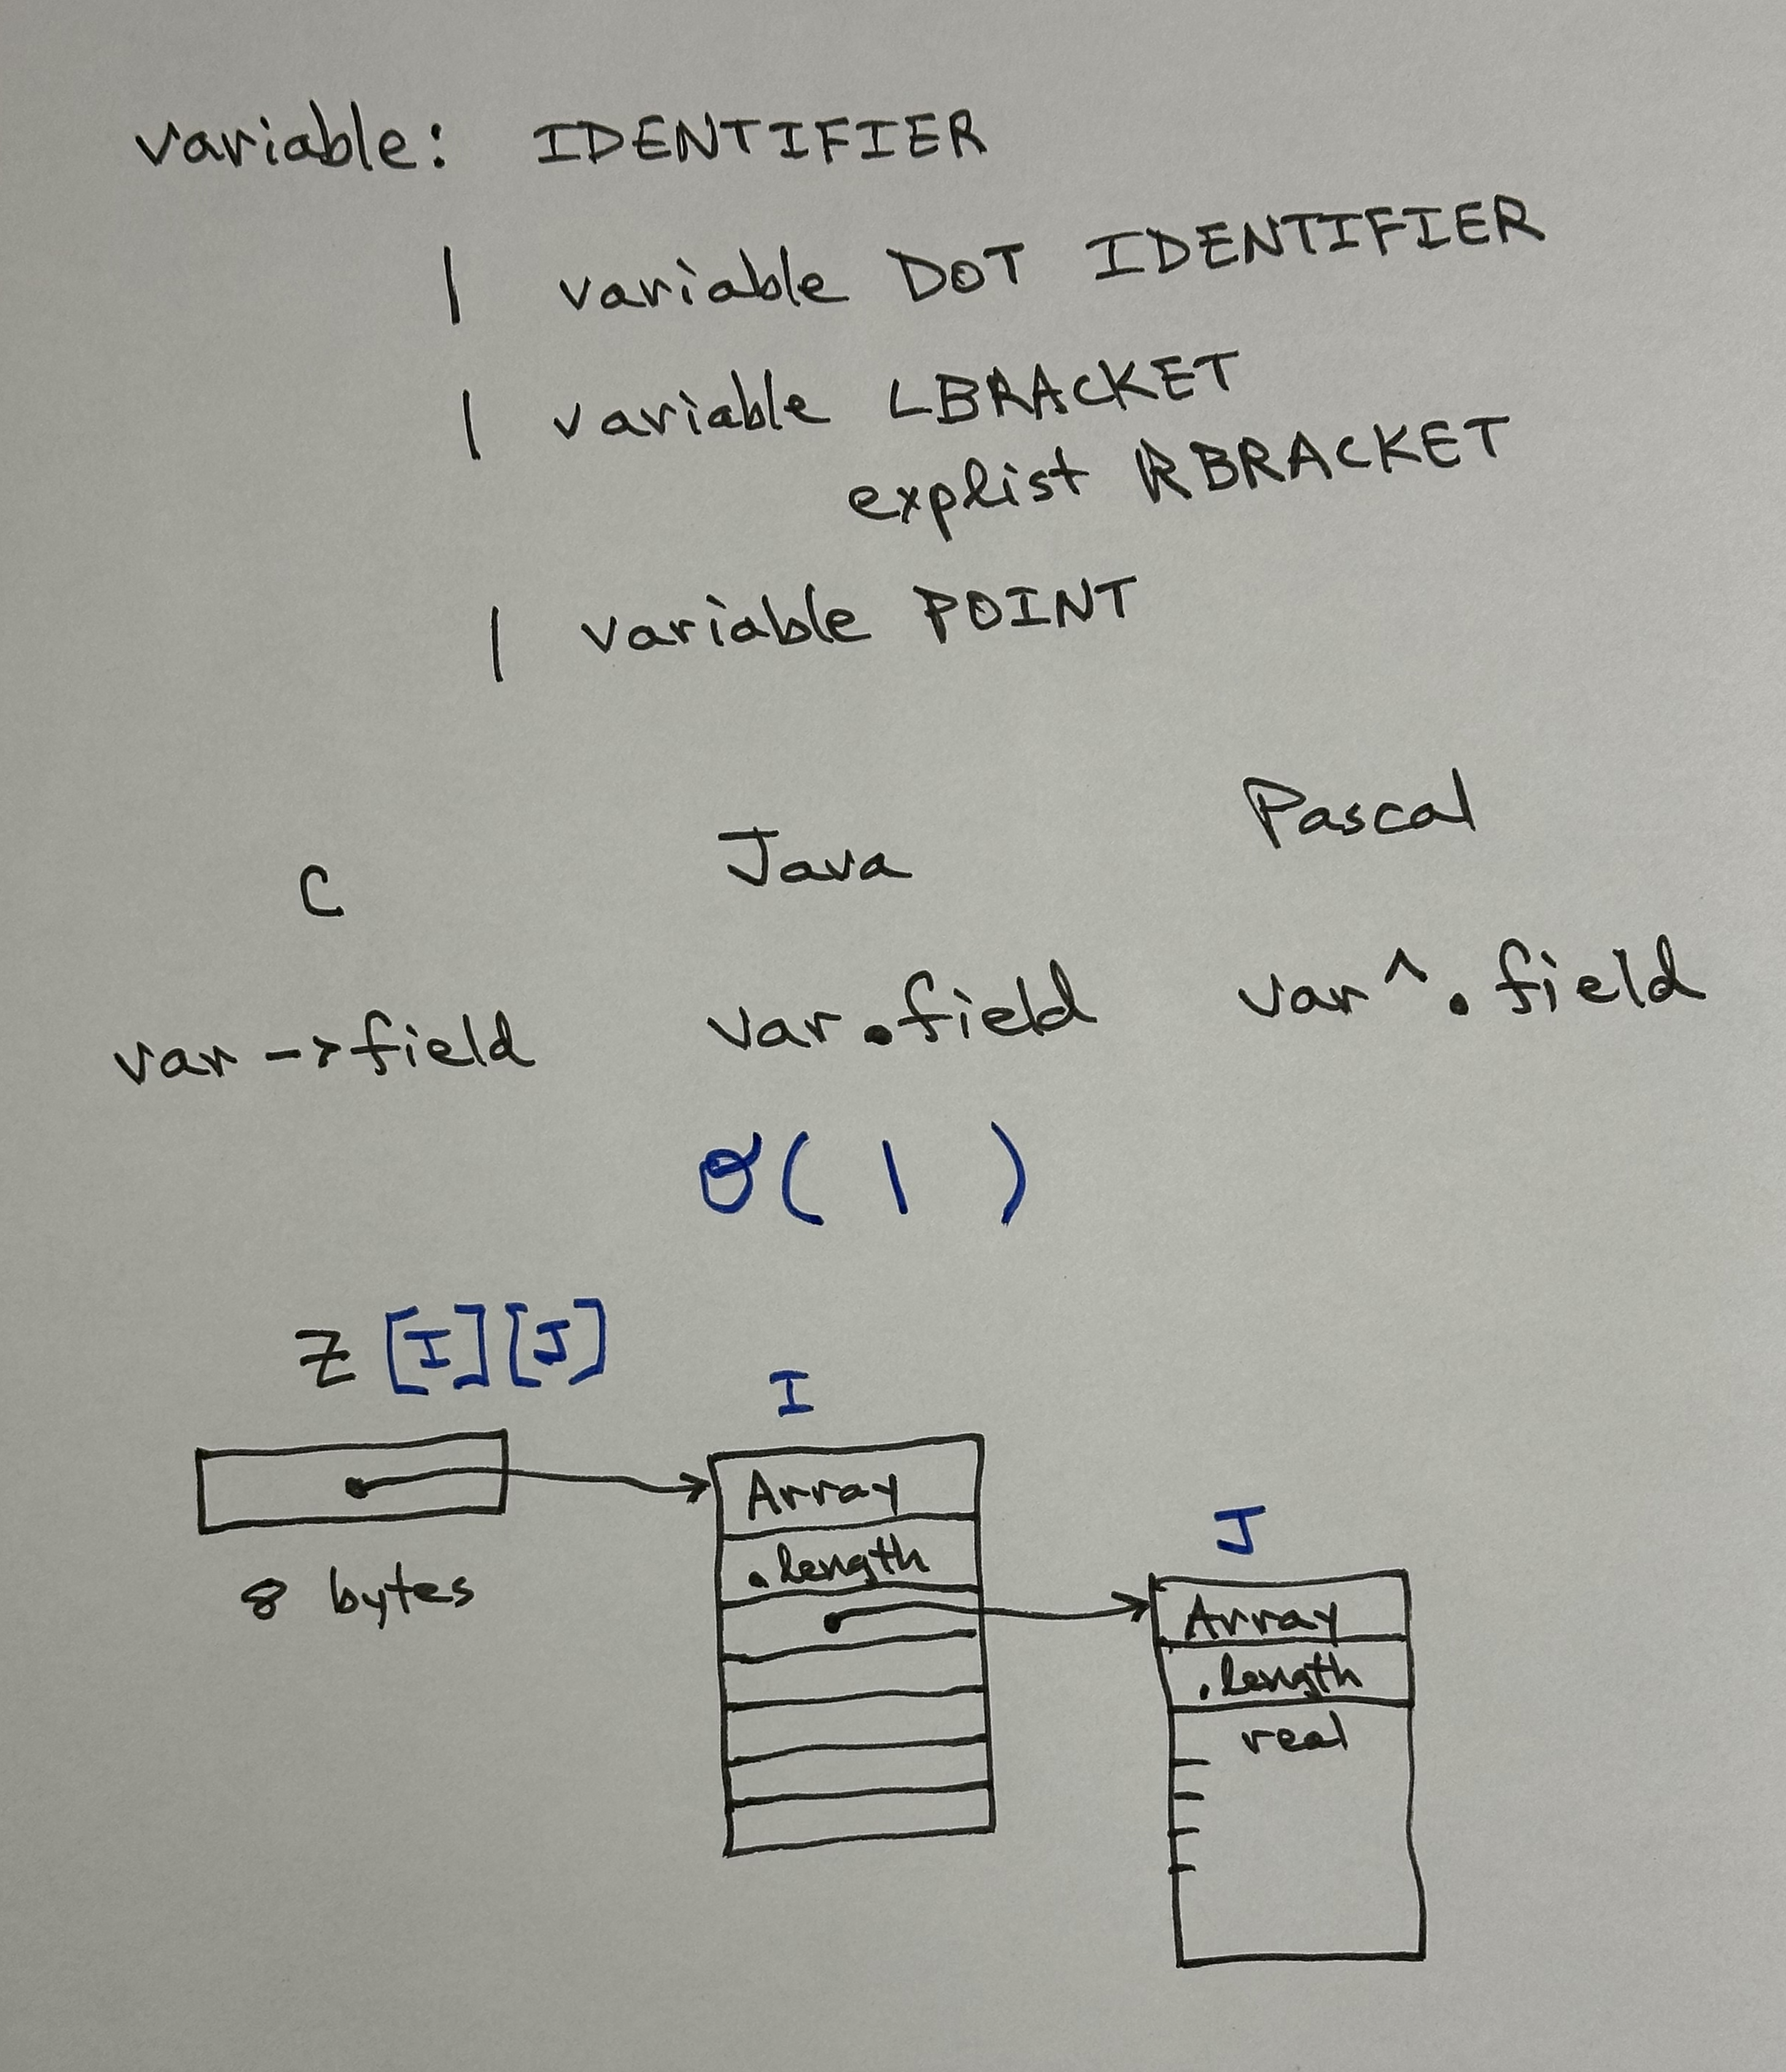 variable: IDENTIFIER
| variable DOT IDENTIFIER
| variable LBRACKET
explist RBRACKET
| variable POINT
C Java Pascal
var->field var.field var^.field
O( 1 )
Z [I][J]
I
Array
.length
8 bytes
J
Array
.length
real